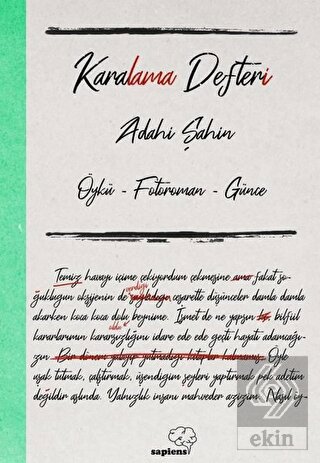 Karalama Defteri
Adahi Şahin
Öykü - Fotoroman - Günce
Temiz havayı içime çekiyordum çekmesine ama fakat so-
verdiği
ğukluğun oksijenin de sağladığı cesaretle düşünceler damla damla
akarken koca koca dolu beynime. İsmet de ne yapsın
oldu
kararlarımın kararsızlığını idare ede ede geçti hayatı adamcağı-
zın. Bir dönem yalayıp yutmadığı kitaplar kalmamış. Öyle
uşak tutmak, çalıştırmak, üşendiğim şeyleri yaptırmak pek adetim
değildir aslında. Yalnızlık insanı mahveder azizim. Nasıl iy-
sapiens
ekin